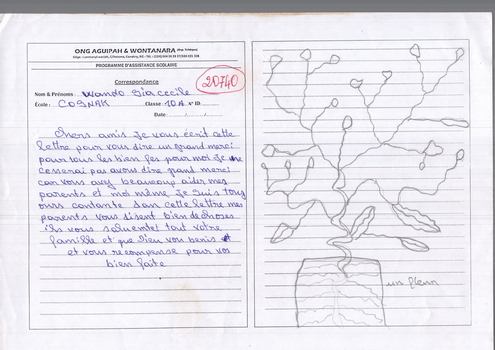 ONG AGUIPAH & WONTANARA
PROGRAMME D'ASSISTANCE SCOLAIRE
Correspondance
20740
Nom & Prénoms : Wando Siacecile
École : COSNAK Classe : 10A N° ID:
Date : / /
Chers amis Je vous écrit cette
lettre pour vous dire un grand merci
pour tous les bien fes pour moi Je ne
cesserai pas a vous dire grand merci
car vous avez beaucoup aider mes
parents et moi même Je suis touj
ours contante dans cette lettre mes
parents vous disent bien de choses
ils vous saluent et tout votre
famille et que Dieu vous benis et
et vous recompense pour vos
bien faite
un fleur